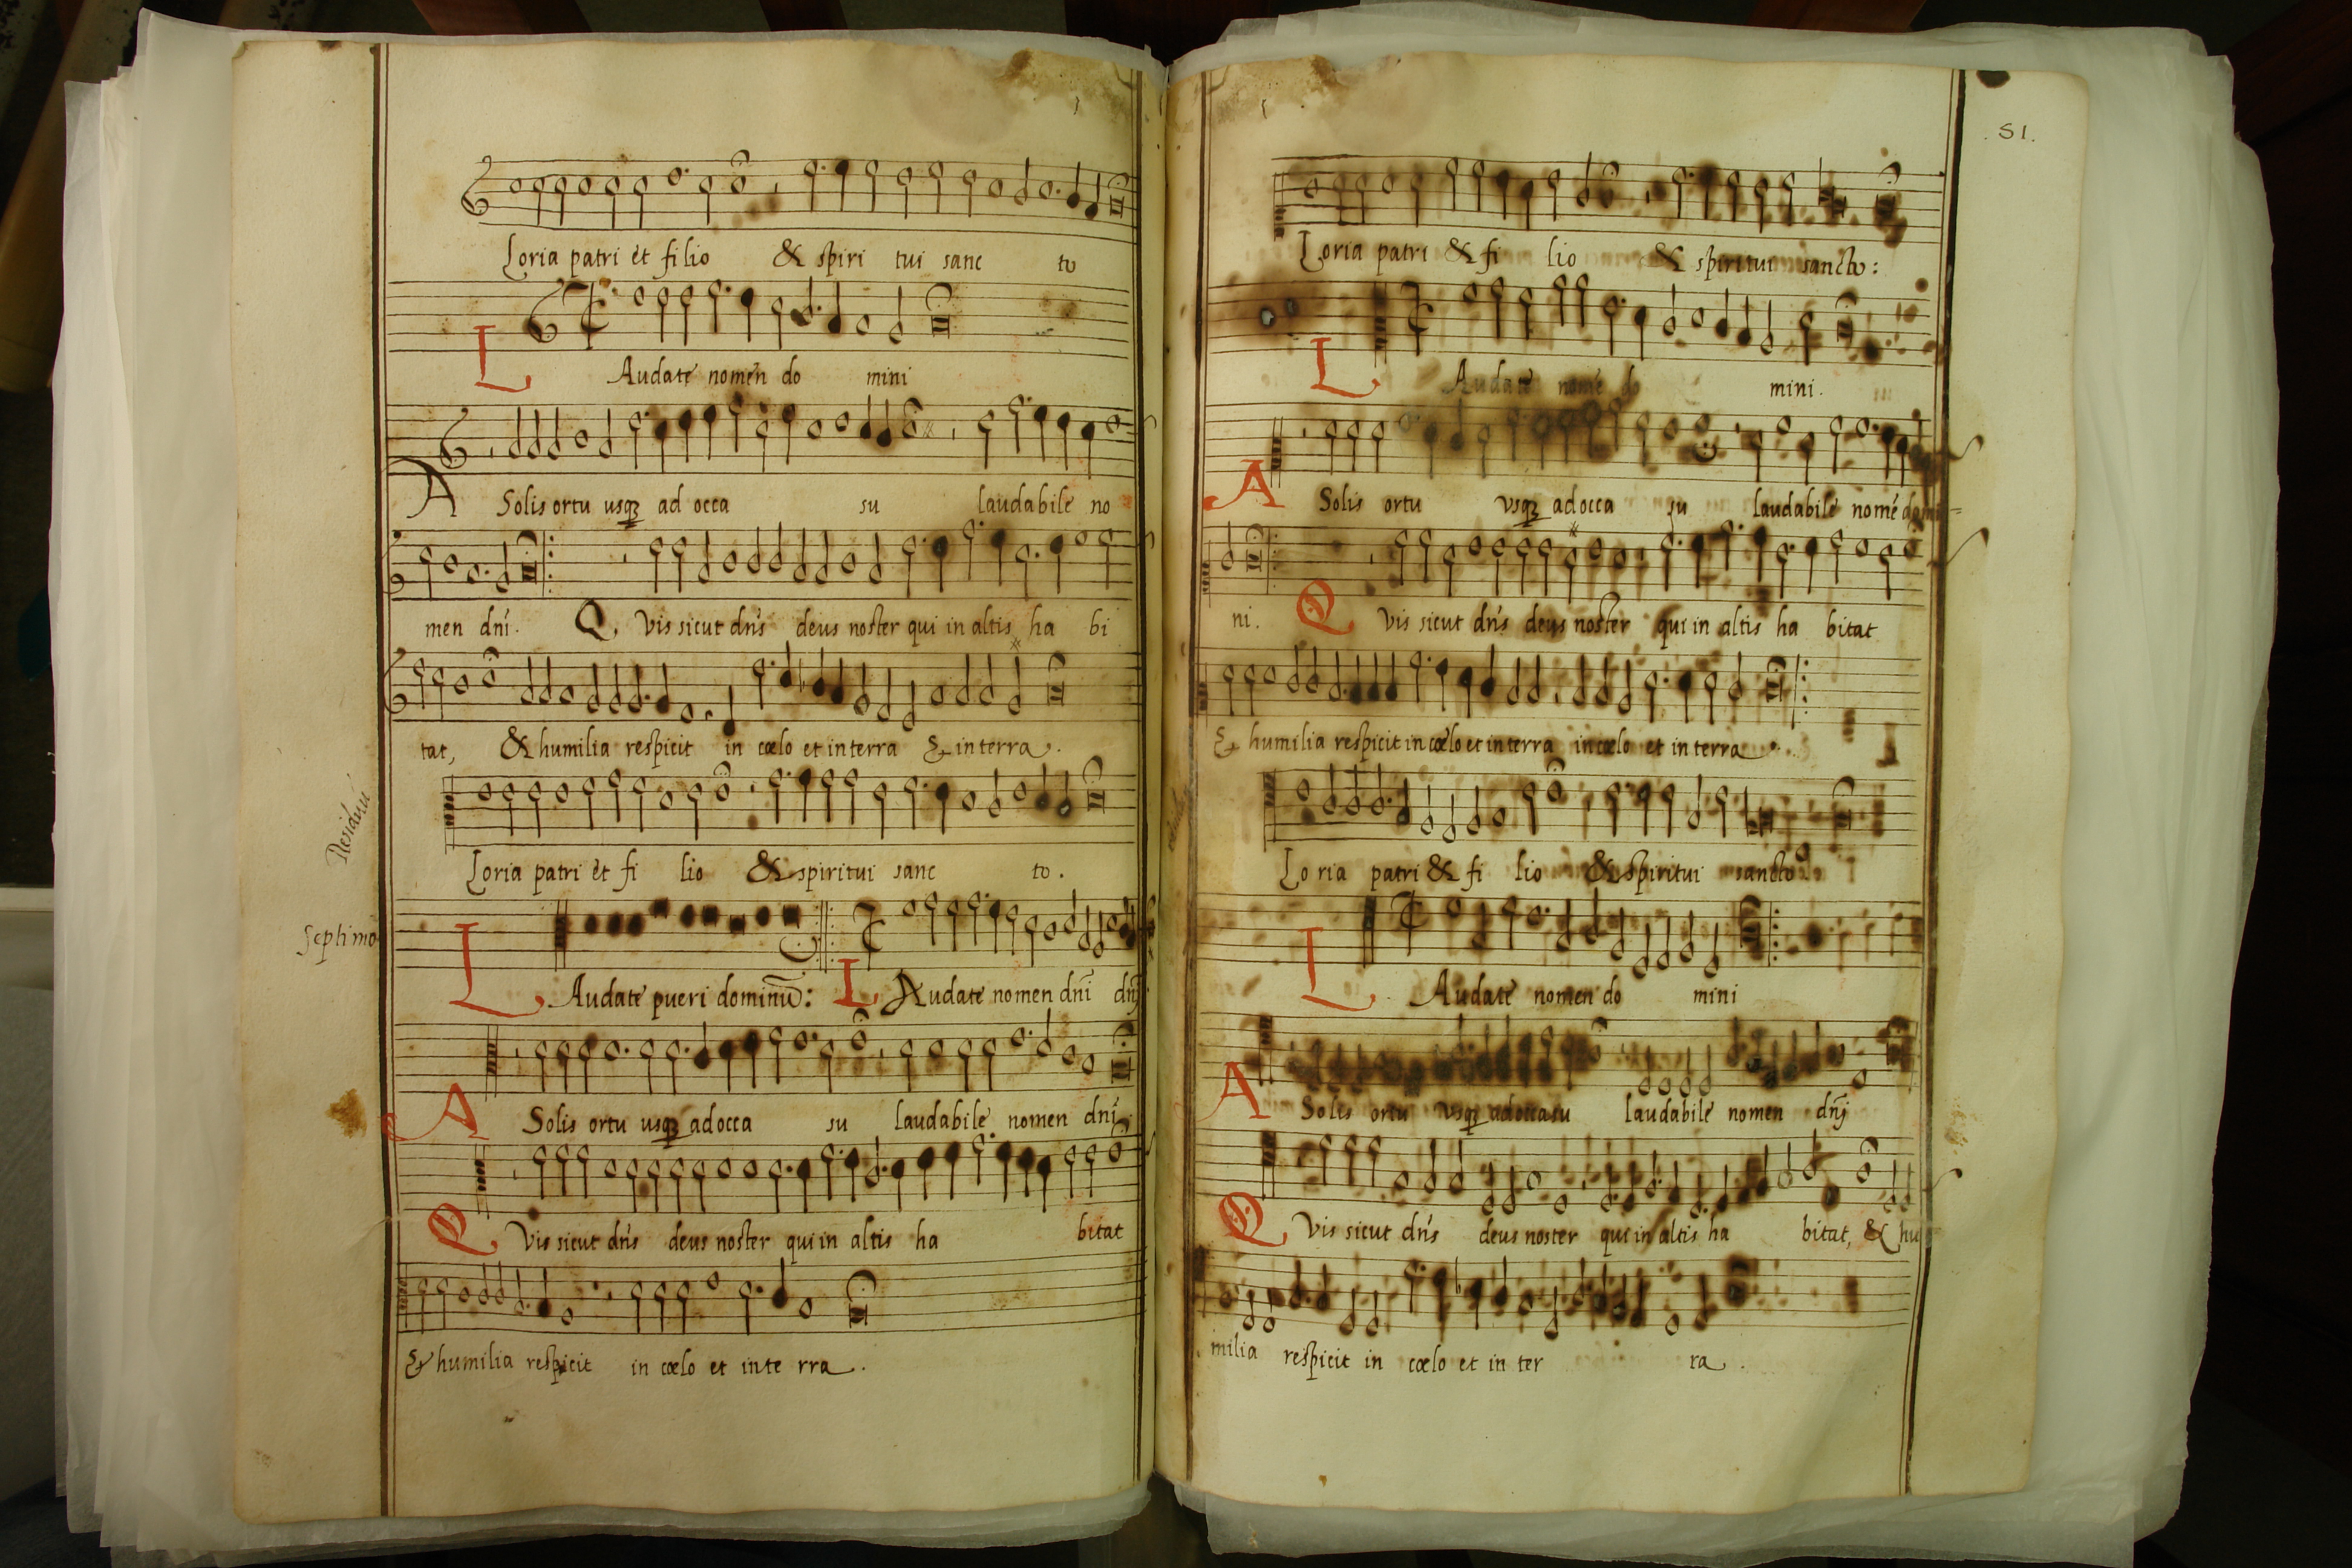 Loria patri et filio & spiri tui sanc to
L Audate nomen do mini
A Solis ortu usq3 ad occa su laudabile no
men dní. Q, vis sicut dnís deus noster qui in altis ha bi
tat, & humilia respicit in cœlo et in terra & in terra.
Loria patri et fi lio & spiritui sanc to.
Septimo
L Audate pueri dominū: L Audate nomen dní dní
A Solis ortu usq3 ad occa su laudabile nomen dní
Q Vis sicut dnís deus noster qui in altis ha bitat
& humilia respicit in cœlo et in te rra.
.51.
Loria patri & fi lio & spiritui sancto:
L Audate nomē do mini.
A Solis ortu vsq3 ad occa su laudabile nomē domi=
ni. Q vis sicut dnís deus noster qui in altis ha bitat
& humilia respicit in cœlo et in terra in cœlo et in terra.
Lo ria patri & fi lio & spiritui sancto
L Audate nomen do mini
A Solis ortu vsq3 ad occasu laudabile nomen dnj
Q Vis sicut dnís deus noster qui in altis ha bitat, & hu
milia respicit in cœlo et in ter ra.